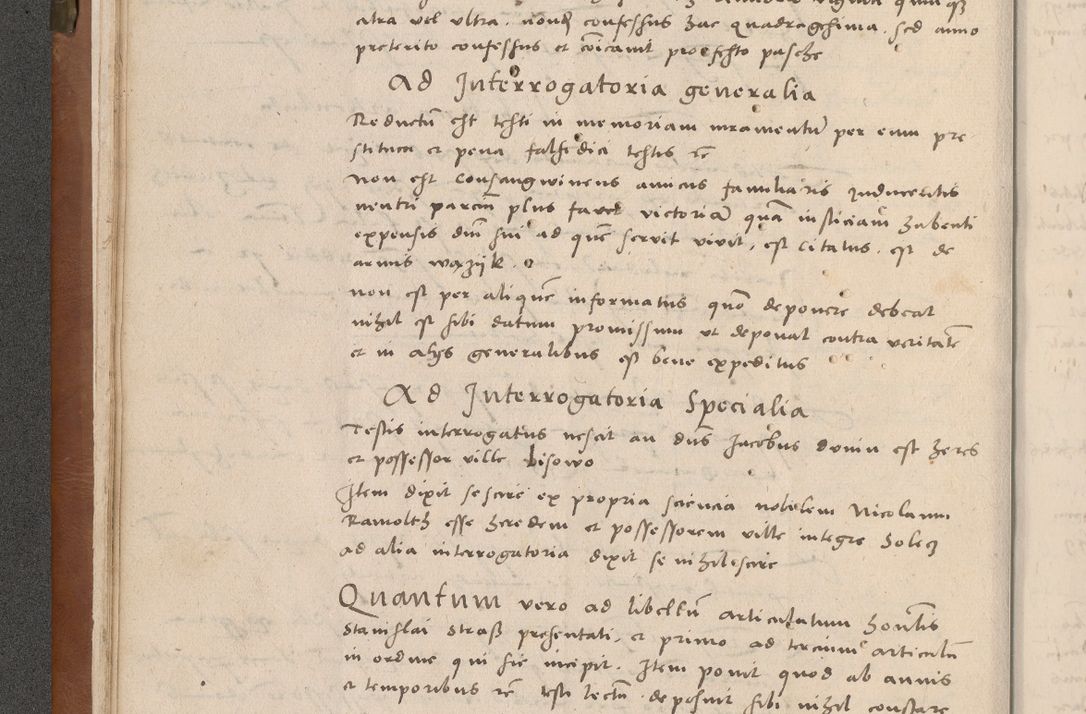 citra vel ultra. nondum confessus hac quadragesima. sed anno
preterito confessus et coicavit pro festo pasche
Ad Interrogatoria generalia
Reductu est testi in memoriam iuramentu per eum pre
stituta et pena falsidici testis rc
Non est Consangwineus amicus familiaris Inducentis
neutri parciu plus favet victoria qua iusticiam habenti
expensis dni sui ad que servit vivit. est citatus. est de
armis waszijk.
non est per aliquem informatus quo deponere debeat
nihil est sibi datum promissum ut deponat contra veritate
et in alijs generalibus est bene expeditus
Ad Interrogatoria Specialia
Testis interrogatus nescit an dus Jacobus dunin est heres
et possessor ville bisowo
Item dixit se scire ex propria sciencia nobilem Nicolaum
Ramolth esse heredem et possessorem ville integre
ad alia interrogatoria dixit se nihil scire
Quantum vero ad libellu articulatum honestis
Stanislai Strasz presentati. et primo ad tercium articulu
in ordine qui sic incipit. Item ponit quod ab annis
et temporibus rc testi lectu. deposuit sibi nihil constare